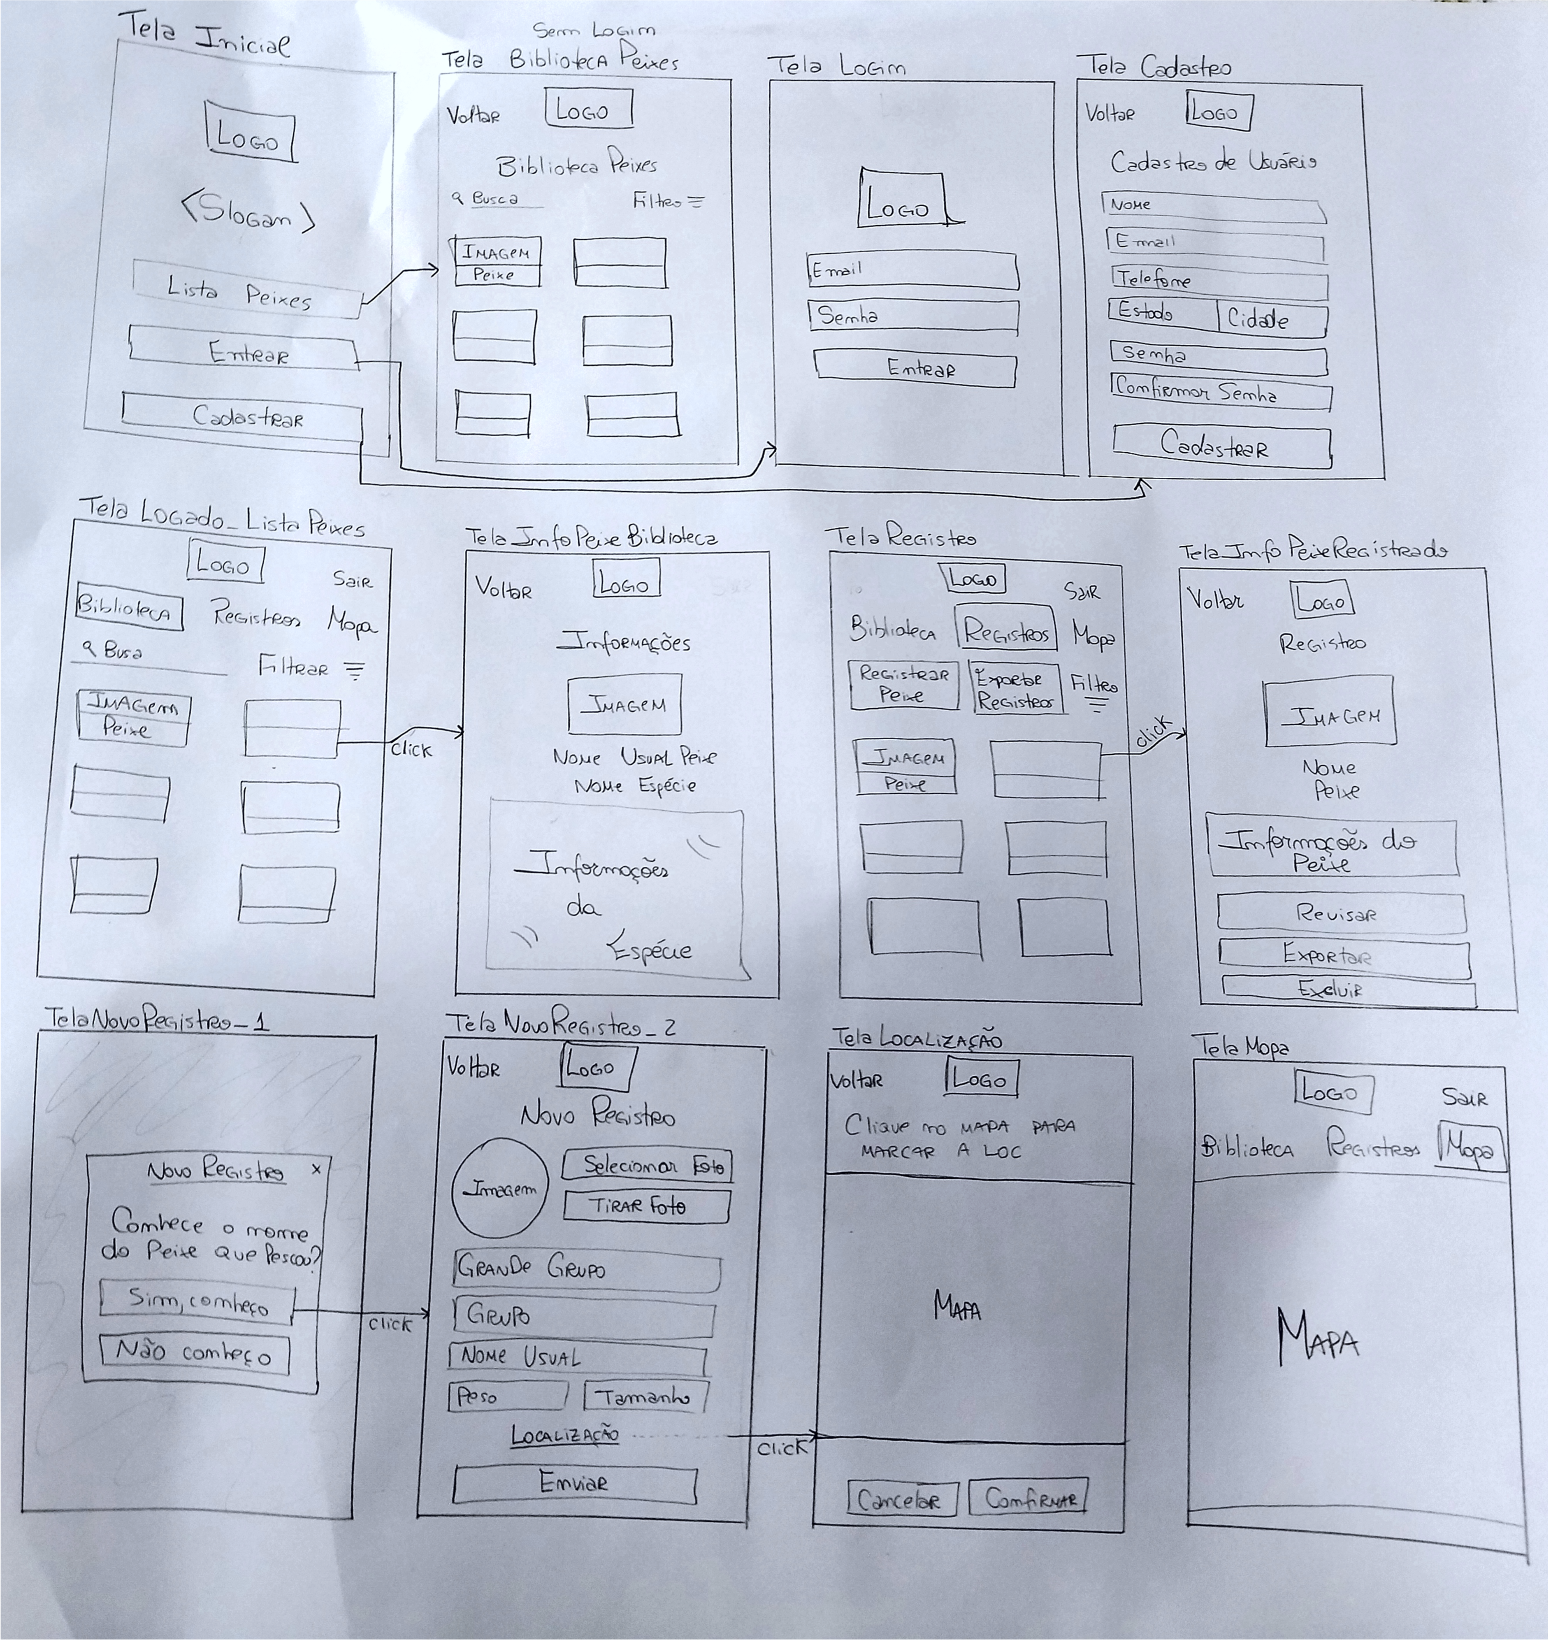 Tela Inicial
LOGO
<Slogan>
Lista Peixes
Entrar
Cadastrar
Sem Login
Tela Biblioteca Peixes
Voltar
LOGO
Biblioteca Peixes
Busca
Filtro
IMAGEM
Peixe
Tela Login
LOGO
Email
Senha
Entrar
Tela Cadastro
Voltar
LOGO
Cadastro de Usuário
Nome
Email
Telefone
Estado
Cidade
Senha
Confirmar Senha
Cadastrar
Tela Logado_Lista Peixes
LOGO
Sair
Biblioteca
Registros
Mapa
Busa
Filtrar
IMAGEM
Peixe
click
Tela Info Peixe Biblioteca
Voltar
LOGO
Informações
IMAGEM
Nome Usual Peixe
Nome Espécie
Informações
da
Espécie
Tela Registro
LOGO
Sair
Biblioteca
Registros
Mapa
Registrar
Peixe
Exportar
Registros
Filtro
IMAGEM
Peixe
click
Tela Info Peixe Registrado
Voltar
LOGO
Registro
IMAGEM
Nome
Peixe
Informações do
Peixe
Revisar
Exportar
Excluir
Tela Novo Registro_1
Novo Registro x
Conhece o nome
do Peixe que Pescou?
Sim, conheço
Não conheço
click
Tela Novo Registro_2
Voltar
LOGO
Novo Registro
Imagem
Selecionar Foto
TIRAR Foto
GRANDE GRUPO
GRUPO
NOME USUAL
Peso
Tamanho
LOCALIZAÇÃO
Enviar
click
Tela LOCALIZAÇÃO
Voltar
LOGO
Clique no MAPA PARA
MARCAR A LOC
MAPA
Cancelar
Confirmar
Tela Mapa
LOGO
Sair
Biblioteca
Registros
Mapa
MAPA